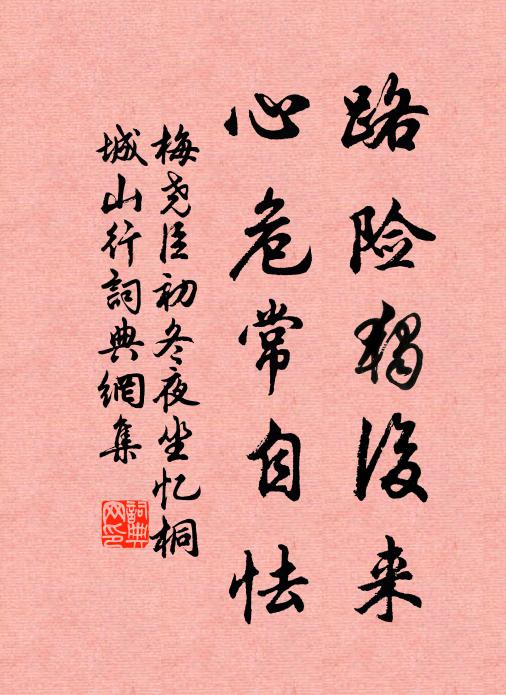 路险独后来
心危常自怯
梅尧臣初冬夜坐忆桐
城山行詞典網集
詞典
网印